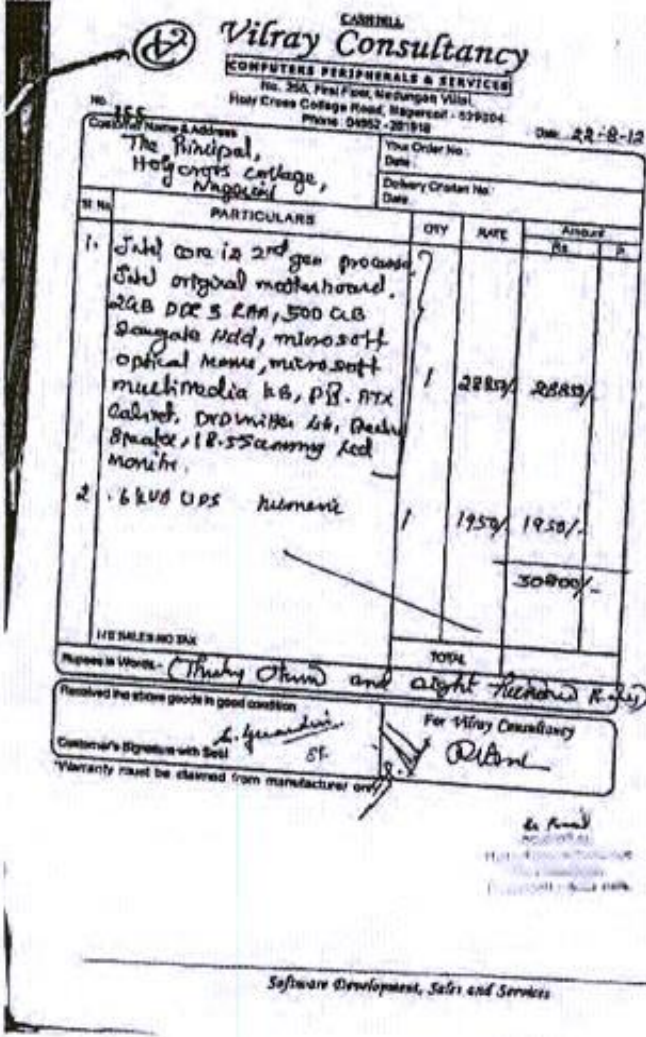 CASH BILL
Vilray Consultancy
COMPUTERS PERIPHERALS & SERVICES
No. 356, First Floor, Nedungan Villai,
Holy Cross College Road, Nagercoil - 629004
Phone: 04652 - 261818
No. 355
Date 22-8-12
Customer Name & Address
The Principal,
Holy cross college,
Nagercoil
Your Order No.
Date:
Delivery Challan No.
Date:
Sl. No. PARTICULARS QTY RATE Amount
Rs. P.
1. Intel core i3 2nd gen processor
Intel original motherboard.
2GB DDR 3 RAM, 500 GB
Seagate Hdd, microsoft
optical Mouse, microsoft
multimedia kb, ATX 1 28850/- 28850/-
Cabinet, DVD writer
Speaker, 18.5 Led
Monitor.
2 .6 KVA UPS numeric 1 1950/- 1950/-
30800/-
SALES NO TAX
TOTAL
Rupees in Words:- (Thirty and eight hundred
Received the above goods in good condition
Customer's Signature with Seal
For Vilray Consultancy
*Warranty must be claimed from manufacturer only
Software Development, Sales and Services